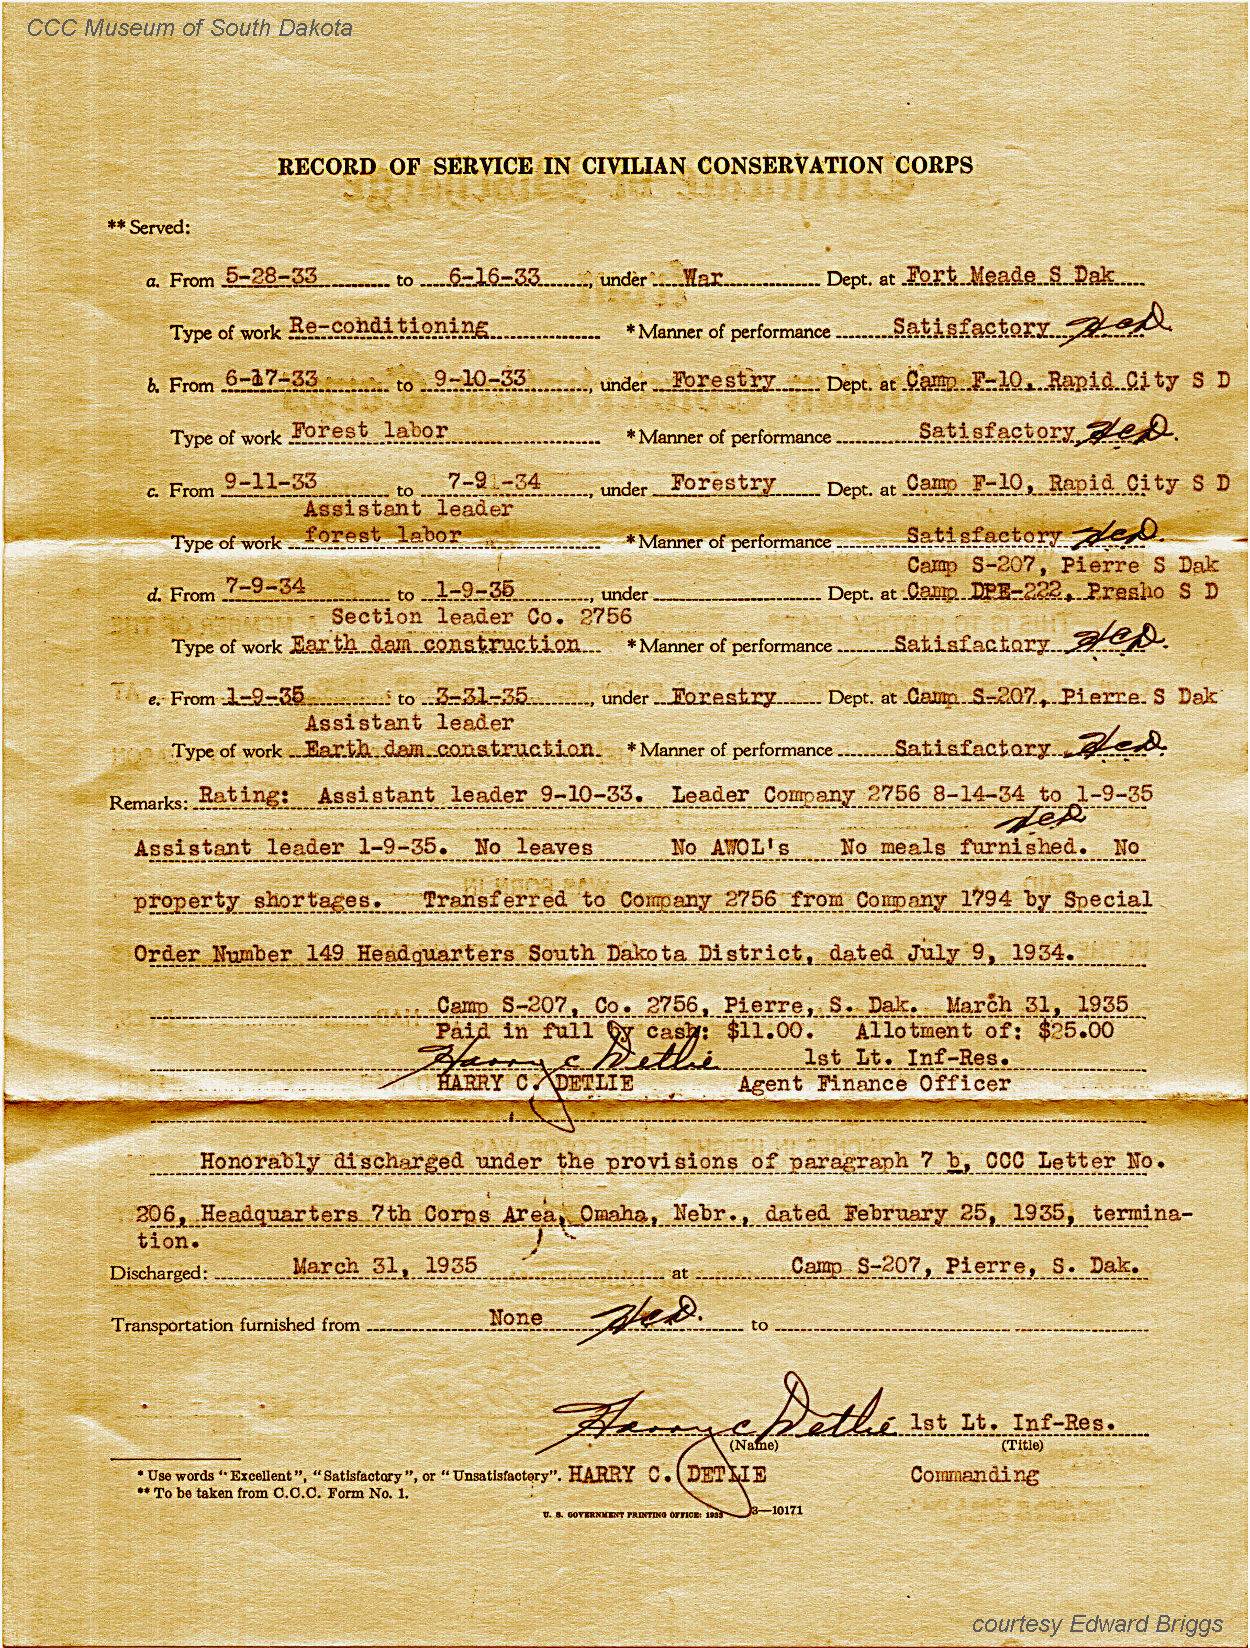 CCC Museum of South Dakota
RECORD OF SERVICE IN CIVILIAN CONSERVATION CORPS
** Served:
a. From 5-28-33 to 6-16-33, under War Dept. at Fort Meade S Dak
Type of work Re-conditioning * Manner of performance Satisfactory HCD.
b. From 6-17-33 to 9-10-33, under Forestry Dept. at Camp F-10, Rapid City S D
Type of work Forest labor * Manner of performance Satisfactory HCD.
c. From 9-11-33 to 7-9-34, under Forestry Dept. at Camp F-10, Rapid City S D
Assistant leader
Type of work forest labor * Manner of performance Satisfactory HCD.
Camp S-207, Pierre S Dak
d. From 7-9-34 to 1-9-35, under Dept. at Camp DPE-222, Presho S D
Section leader Co. 2756
Type of work Earth dam construction * Manner of performance Satisfactory HCD.
e. From 1-9-35 to 3-31-35, under Forestry Dept. at Camp S-207, Pierre S Dak
Assistant leader
Type of work Earth dam construction * Manner of performance Satisfactory HCD.
Remarks: Rating: Assistant leader 9-10-33. Leader Company 2756 8-14-34 to 1-9-35
HCD
Assistant leader 1-9-35. No leaves No AWOL's No meals furnished. No
property shortages. Transferred to Company 2756 from Company 1794 by Special
Order Number 149 Headquarters South Dakota District, dated July 9, 1934.
Camp S-207, Co. 2756, Pierre, S. Dak. March 31, 1935
Paid in full by cash: $11.00. Allotment of: $25.00
Harry C Detlie 1st Lt. Inf-Res.
HARRY C. DETLIE Agent Finance Officer
Honorably discharged under the provisions of paragraph 7 b, CCC Letter No.
206, Headquarters 7th Corps Area, Omaha, Nebr., dated February 25, 1935, termina-
tion.
Discharged: March 31, 1935 at Camp S-207, Pierre, S. Dak.
Transportation furnished from None HCD. to
Harry C Detlie 1st Lt. Inf-Res.
(Name) (Title)
* Use words "Excellent", "Satisfactory", or "Unsatisfactory". HARRY C. DETLIE Commanding
** To be taken from C.C.C. Form No. 1.
U. S. GOVERNMENT PRINTING OFFICE: 1933 3—10171
courtesy Edward Briggs